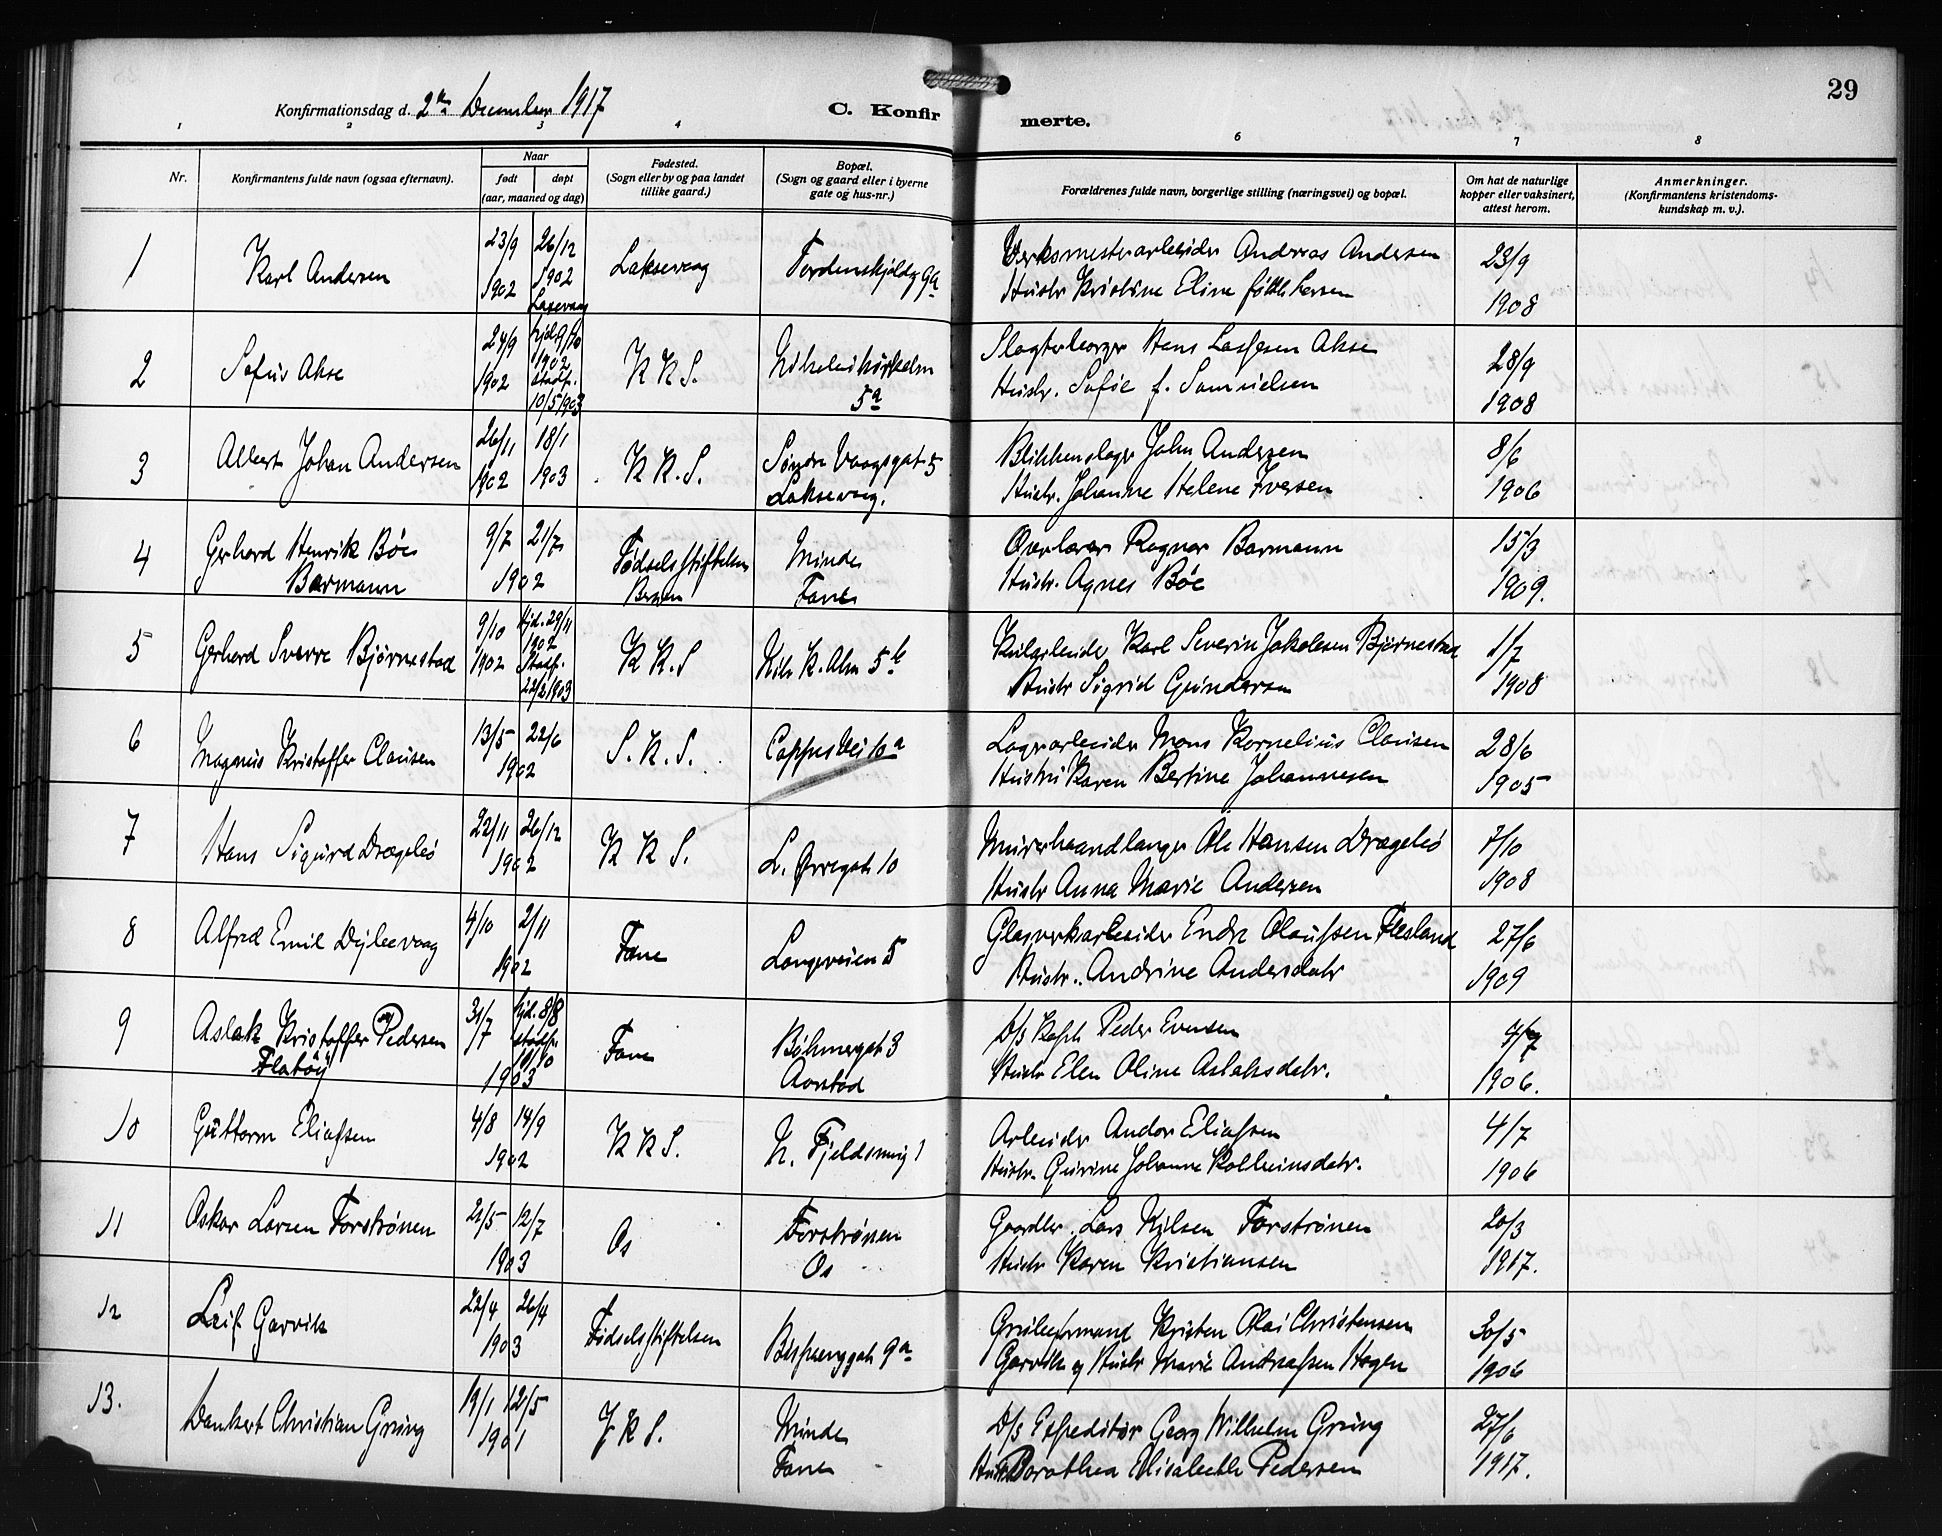 29
Konfirmationsdag d. 2 December 1917
C. Konfirmerte.
1 2 3 4 6 7 8
Nr.
Konfirmantens fulde navn (ogsaa efternavn).
Naar
født
døpt
(aar, maaned og dag)
Fødested.
(Sogn eller by og paa landet
tillike gaard.)
Bopæl.
(Sogn og gaard eller i byerne
gate og hus-nr.)
Forældrenes fulde navn, borgerlige stilling (næringsvei) og bopæl.
Om hat de naturlige
kopper eller vaksinert,
attest herom.
Anmerkninger.
(Konfirmantens kristendoms-
kundskap m. v.).
1
Karl Andersen
23/9
1902
26/12
1902
Laxevaag
Laksevaag
Tordenskjoldsg 9a
Verksmesterarbeider Andreas Andersen
Hustr Kristine Eline
23/9
1908
2
Sofus Akse
24/9
1902
hjd. 9/10
1902
stadf.
10/5 1903
K K S.
5a
Hans Lassesen Akse
Hustr. Sofie f. Samuelsen
28/9
1908
3
Albert Johan Andersen
26/11
1902
18/1
1903
K K. S.
Søndre Vaagsgat 5
Laksevaag.
Blikkenslager John Andersen
Hustr. Johanne Helene Iversen
8/6
1906
4
Gerhard Henrik Bøe
Barmann
9/7
21/7
1902
Fødselsstiftelsen
Bergen
Minde
Fane
Overlærer Ragnar Barmann
Hustr. Agnes Bøe
15/3
1909.
5
Gerhard Sverre Bjørnestad
9/10
1902
hjd. 29/11
1902
Stadf.
22/2 1903
K K. S
5b
Karl Severin Jakobsen Bjørnestad
Hustr Sigrid Gundersen
1/7
1908
6
Magnus Kristoffer Clausen
13/5
22/6
1902
S. K. S.
Cappes Vei 10a
Lagerarbeider Mons Kornelius Clausen
Hustru Karen Bertine Johannesen
28/6
1905
7
Hans Sigurd Drægelsø
22/11
26/12
1902
K K S.
L. Øvregate 10
Murerhaandlanger Ole Hansen Drægelsø
Hustr Anna Marie Andersen
7/10
1908
8
Alfred Emil
4/10
2/11
1902
Fane
Langeveien 5
Glasverksarbeider Endre Olaussen Flesland
Hustr. Andrine Andersdatr
27/6
1909
9
Aslak Kristoffer Pedersen
Flatøy
31/7
hjd. 8/8
stadf.
11/10
1903
Fane
Bøhmergat 3
Aarstad
D/s Kapt. Peder Evensen
Hustr Elen Oline Aslaksdatr.
4/7
1906.
10
Guttorm Eliassen
4/8
14/9
1902
K K S.
N. Fjeldsmug 1
Arbeider Andor Eliassen
Hustr. Gurine Johanne Kolbeinsdatr.
4/7
1906
11
Oskar Larsen Forstrønen
21/5
12/7
1903
Os
Forstrønen
Os
Gaardbr. Lars Nilsen Forstrønen
Hustr Karen Kristiansen
20/3
1917.
12
Leif Garvik
22/4
26/4
1903
Fødselsstiftelsen
Bispenggate 9a
Kristen Olai Christensen
Garvik og Hustr Marie Andreassen Hagen
30/5
1906
13.
Dankert Christian Grüng
19/1
12/5
1901
J K S.
Minde
Fane
D/s Expeditør Georg Wilhelm Grüng
Hustr Dorothea Elisabeth Pedersen
27/6
1917.